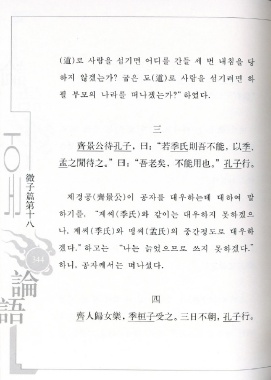 (道)로 사람을 섬기면 어디를 간들 세 번 내침을 당
하지 않겠는가? 굽은 도(道)로 사람을 섬기려면 하
필 부모의 나라를 떠나겠는가?” 하였다.
三
齊景公待孔子, 曰: “若季氏則吾不能, 以季.
孟之閒待之.” 曰: “吾老矣, 不能用也.” 孔子行.
제경공(齊景公)이 공자를 대우하는데 대하여 말
하기를, “계씨(季氏)와 같이는 대우하지 못하겠으
나, 계씨(季氏)와 맹씨(孟氏)의 중간정도로 대우하
겠다.” 하고는 “나는 늙었으므로 쓰지 못하겠다.”
하니, 공자께서는 떠나셨다.
四
齊人歸女樂, 季桓子受之. 三日不朝, 孔子行.
微子篇第十八
344
論語